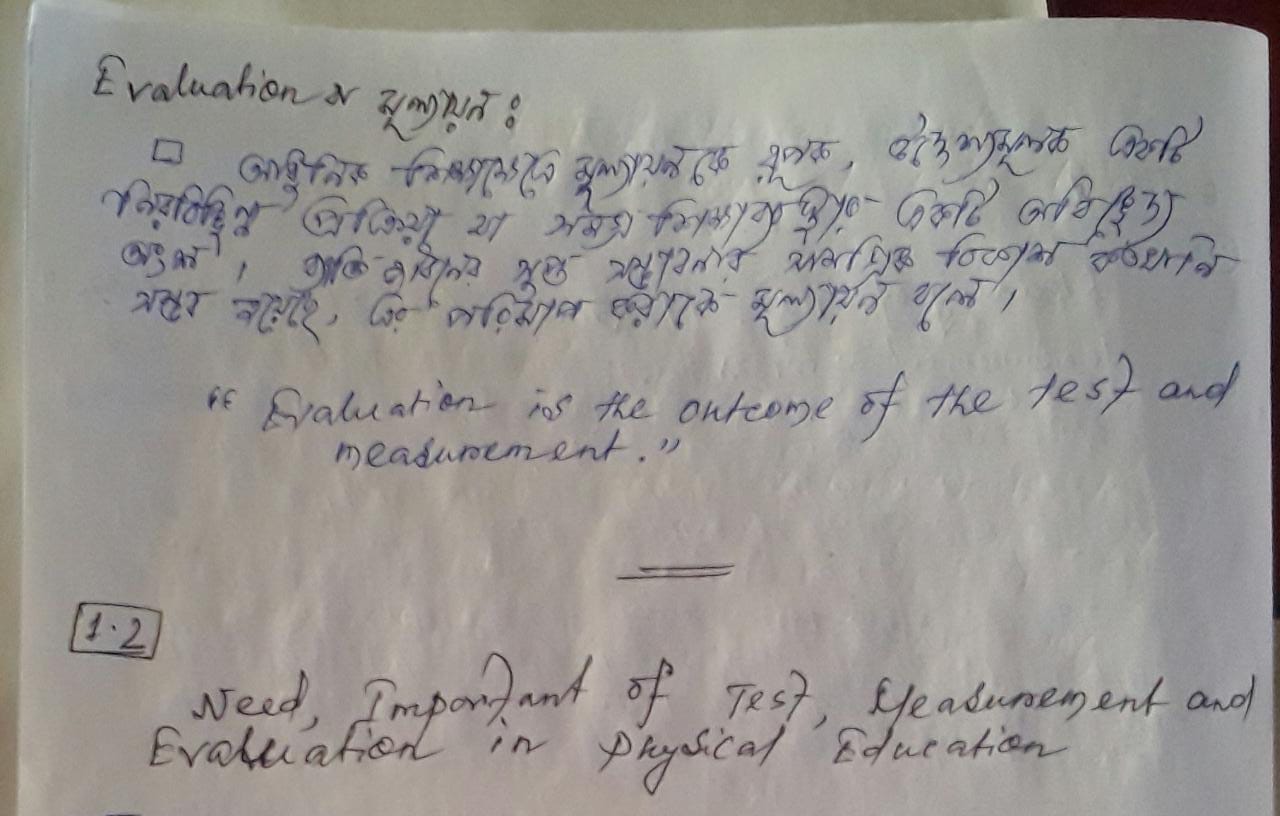 Evaluation বা মূল্যায়ন :
আধুনিক শিক্ষাক্ষেত্রে মূল্যায়নকে হলক, উদ্দেশ্যমূলক একটি
নিরবিচ্ছিন্ন প্রক্রিয়া যা সমগ্র শিক্ষাব্যবস্থার একটি অবিচ্ছেদ্য
অংশ, ব্যক্তি জীবনের সুপ্ত সম্ভাবনার সামগ্রিক বিকাশ কতখানি
সম্ভব হয়েছে, এর পরিমাপ করাকে মূল্যায়ন বলে,
"Evaluation is the outcome of the test and
measurement."
1.2
Need, Important of Test, Measurement and
Evaluation in physical Education